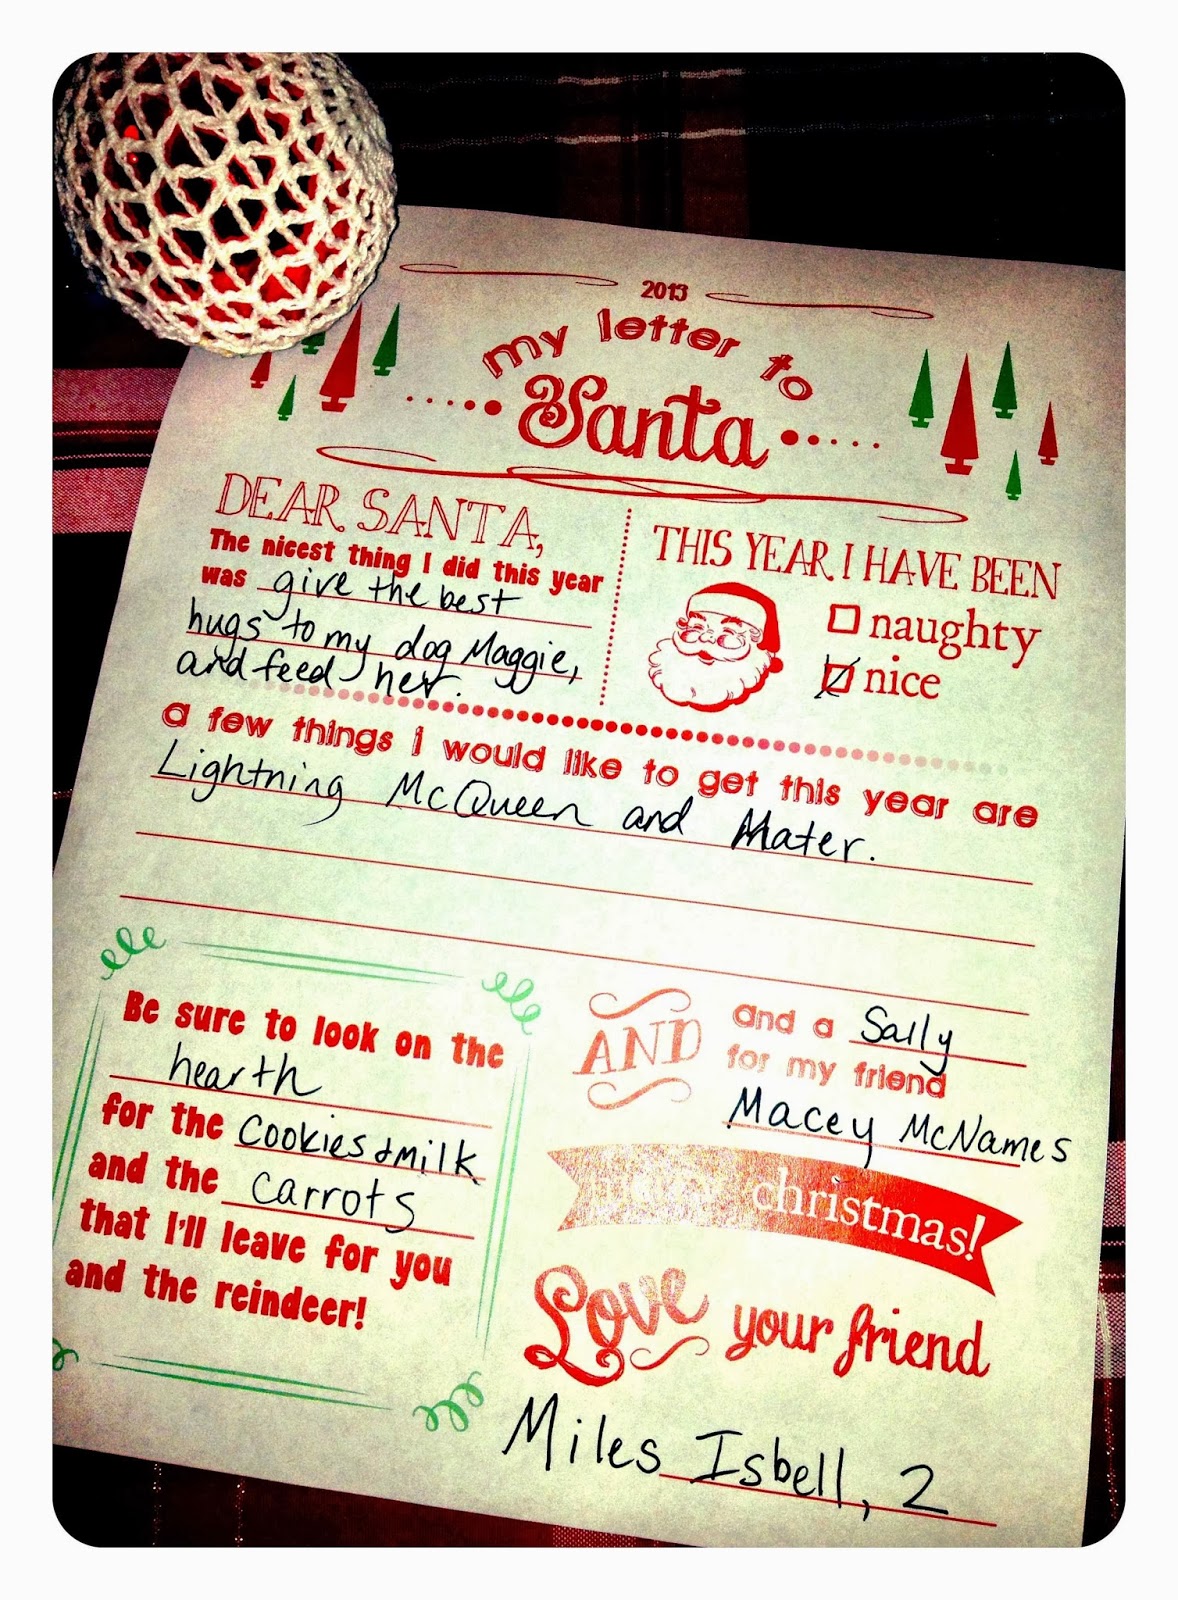 2013
my letter to
Santa
DEAR SANTA,
The nicest thing I did this year
was give the best
hugs to my dog Maggie,
and feed her.
THIS YEAR I HAVE BEEN
naughty
nice
a few things i would like to get this year are
Lightning McQueen and Mater.
Be sure to look on the
hearth
for the cookies & milk
and the carrots
that I'll leave for you
and the reindeer!
AND
and a Sally
for my friend
Macey McNames
christmas!
Love your friend
Miles Isbell, 2